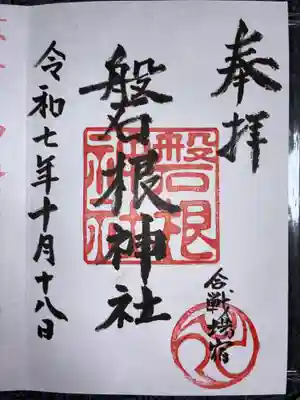 奉拝
合戦場宿
磐根神社
磐根神社
令和七年十月十八日